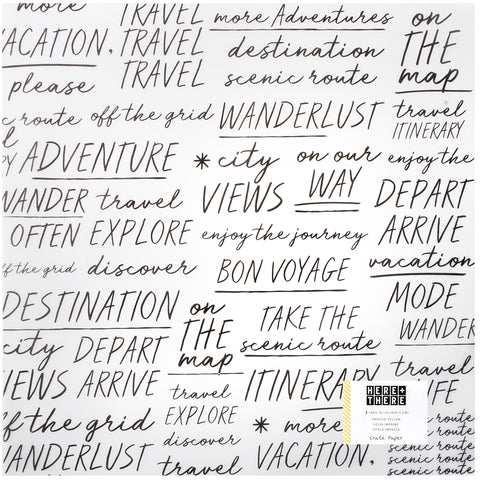 TRAVEL more Adventures on
VACATION, TRAVEL destination THE
please TRAVEL scenic route map
c route off the grid WANDERLUST travel
ITINERARY
ADVENTURE * city on our enjoy the
WANDER travel VIEWS WAY DEPART
OFTEN EXPLORE enjoy the journey ARRIVE
ff the grid discover BON VOYAGE vacation
DESTINATION on TAKE THE MODE
city DEPART THE scenic route WANDER
map
VIEWS ARRIVE travel ITINERARY travel
LIFE
HERE +
THERE
VELLUM
Crate Paper
off the grid EXPLORE * more scenic route
discover scenic route
WANDERLUST travel VACATION, scenic route
scenic route